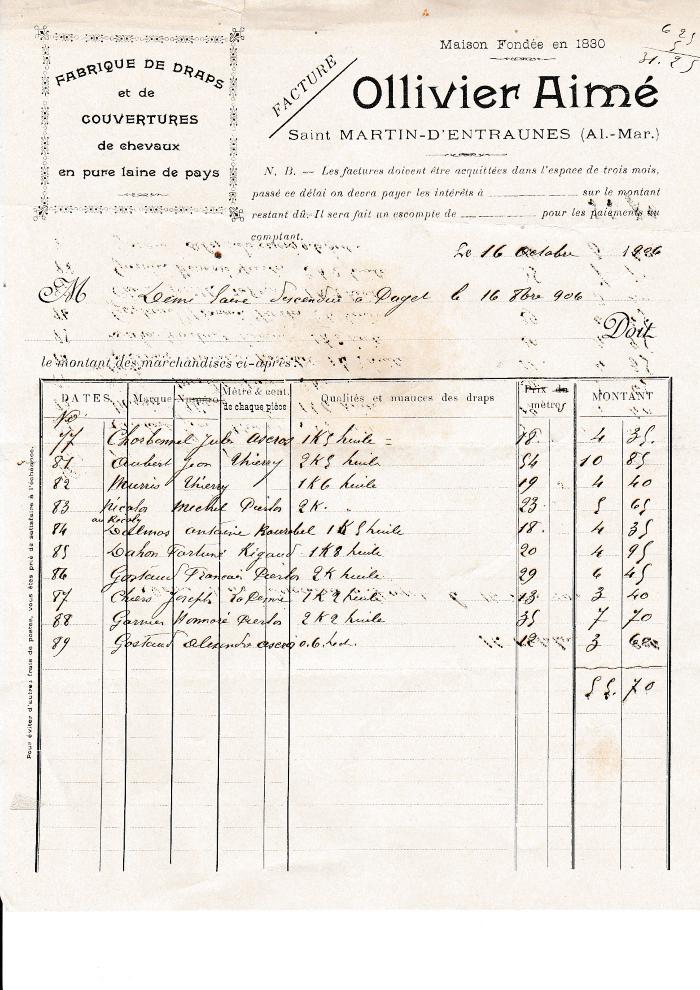 Maison Fondée en 1830
6 25
5
31.25
FABRIQUE DE DRAPS
et de
COUVERTURES
de chevaux
en pure laine de pays
FACTURE
Ollivier Aimé
Saint MARTIN-D'ENTRAUNES (Al.-Mar.)
N. B. — Les factures doivent être acquittées dans l'espace de trois mois,
passé ce délai on devra payer les intérêts à sur le montant
restant dû. Il sera fait un escompte de pour les paiements au
comptant.
Le 16 octobre 1906
M Descendue a Puget le 16 8bre 906
Doit
le montant des marchandises ci-après :
DATES Marque Numéro Mètre & cent. de chaque pièce Qualités et nuances des draps Prix du mètre MONTANT
No
77 Charbonnel Jules Ascros 1K5 huile = 18. 4 35.
81 Aubert Jean Thierry 2K5 huile 54 10 85
82 Murris Thierry 1K6 huile 19 4 40
83 Nicolas Michel Pierlas 2K. " 23. 5 65
84 Dalmas antoine 1K5 huile 18. 4 35
85 Dahon Fortuné Rigaud 1K8 huile 20 4 95
86 Gastaud Francois Pierlas 2K huile 29 6 45
87 Joseph 1K2 huile 13 3 40
88 Garnier Honnoré Pierlas 2K2 huile 35 7 70
89 Gastaud alexandre ascros 0.6. 12 3
55. 70
Pour éviter d'autres frais de postes, vous êtes prié de satisfaire à l'échéance.